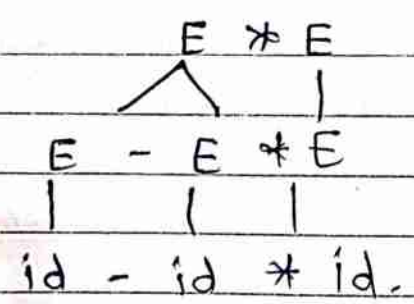 E * E
E - E * E
id - id * id.